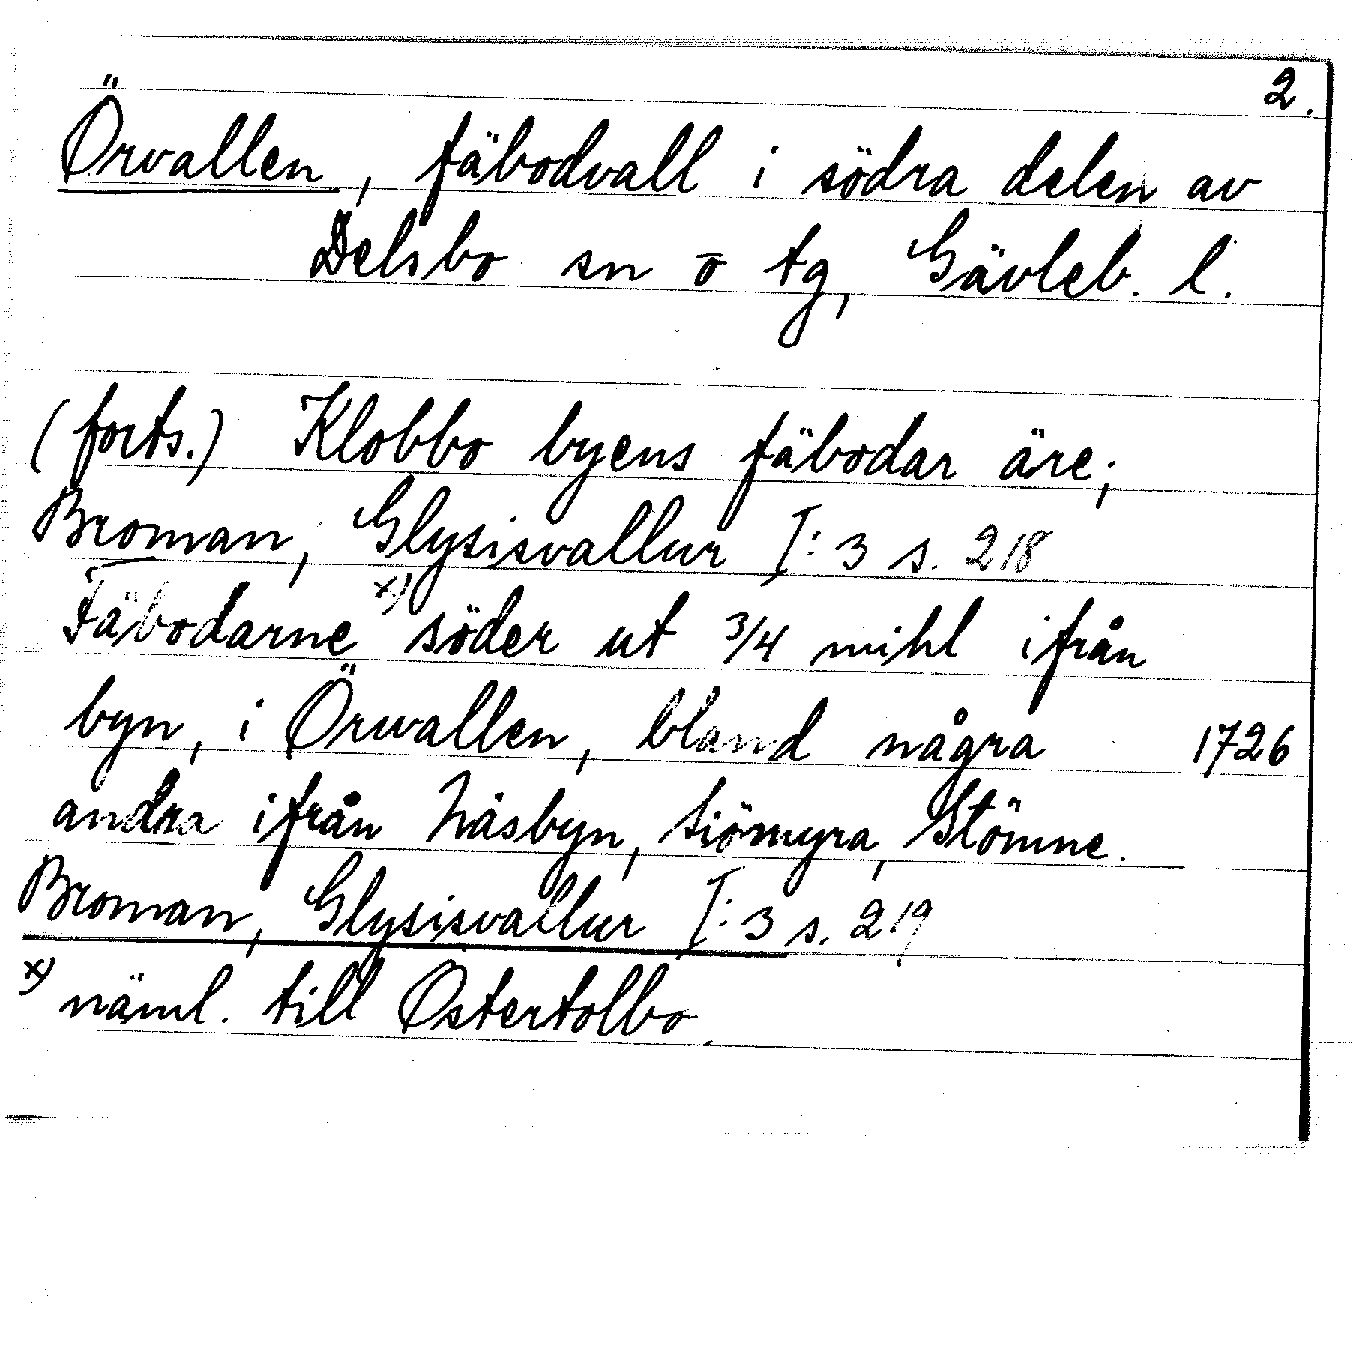 2.
Örvallen, fäbodvall i södra delen av
Delsbo sn o tg, Gävleb. l.
(forts.) Klobbo byens fäbodar äre;
Broman, Glysisvallur I:3 s. 218
Fäbodarne x) söder ut 3/4 mihl ifrån
byn, i Örwallen, bland några 1726
andra ifrån Näsbyn, Siömyra, Stömne.
Broman, Glysisvallur I:3 s. 219
x) näml. till Östertolbo.